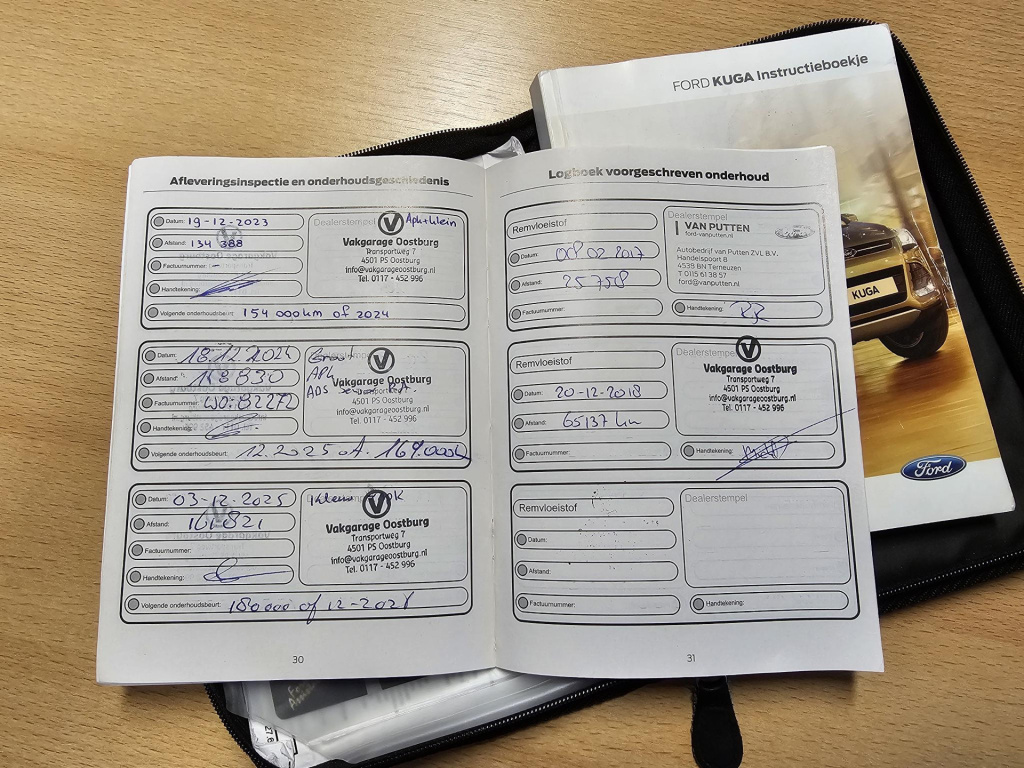 FORD KUGA Instructieboekje
KUGA
Ford
Afleveringsinspectie en onderhoudsgeschiedenis
Datum: 19-12-2023
Afstand: 134 388
Factuurnummer: -
Handtekening:
Volgende onderhoudsbeurt: 154 000km of 2024
Dealerstempel Apk+klein
Vakgarage Oostburg
Transportweg 7
4501 PS Oostburg
info@vakgarageoostburg.nl
Tel. 0117 - 452 996
Datum: 18.12.2024
Afstand:
Factuurnummer:
Handtekening:
Volgende onderhoudsbeurt: 12.2025 169.000
Groot
Vakgarage Oostburg
Transportweg 7
4501 PS Oostburg
info@vakgarageoostburg.nl
Tel. 0117 - 452 996
Datum: 03-12-2025
Afstand: 161.821
Factuurnummer:
Handtekening:
Volgende onderhoudsbeurt: 180 000 of 12-202
Vakgarage Oostburg
Transportweg 7
4501 PS Oostburg
info@vakgarageoostburg.nl
Tel. 0117 - 452 996
30
Logboek voorgeschreven onderhoud
Remvloeistof
Datum: 08 02 2017
Afstand: 25758
Factuurnummer:
Dealerstempel
VAN PUTTEN
ford-vanputten.nl
Autobedrijf van Putten ZVL B.V.
Handelspoort 8
4538 BN Terneuzen
T 0115 61 38 57
ford@vanputten.nl
Handtekening:
Remvloeistof
Datum: 20-12-2018
Afstand: 65137 km
Factuurnummer:
Dealerstempel
Vakgarage Oostburg
Transportweg 7
4501 PS Oostburg
info@vakgarageoostburg.nl
Tel. 0117 - 452 996
Handtekening:
Remvloeistof
Datum:
Afstand:
Factuurnummer:
Dealerstempel
Handtekening:
31